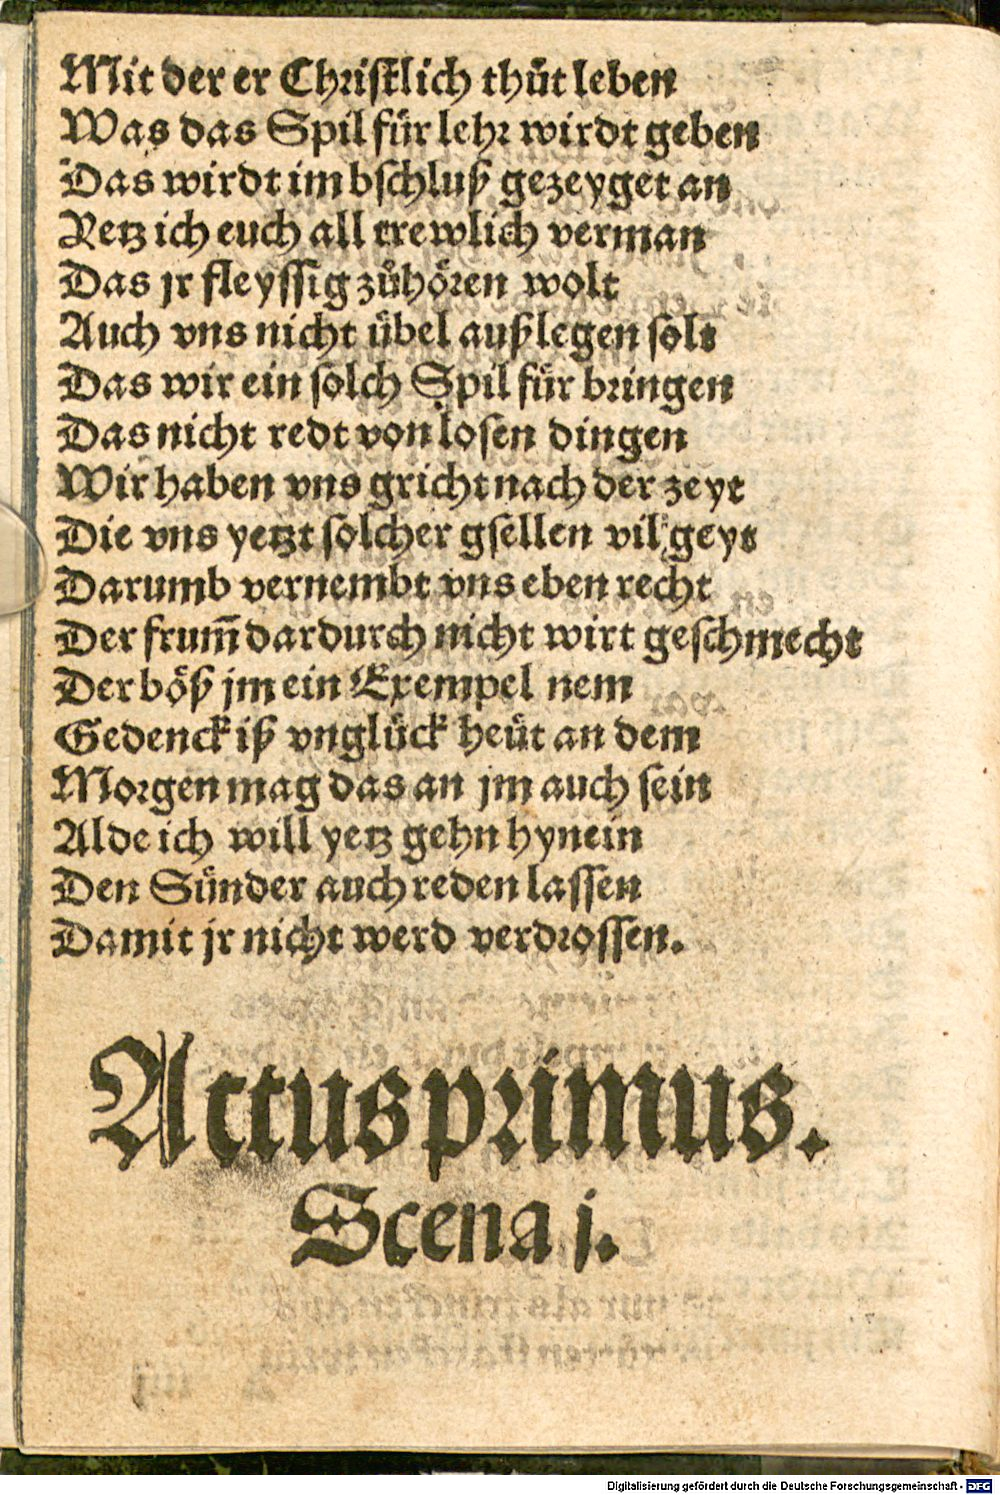 Mit der er Christlich thůt leben
Was das Spil für lehr wirdt geben
Das wirdt im bschluß gezeyget an
Yetz ich euch all trewlich verman
Das jr fleyssig zůhören wolt
Auch vns nicht übel außlegen solt
Das wir ein solch Spil für bringen
Das nicht redt von losen dingen
Wir haben vns gricht nach der zeyt
Die vns yetzt solcher gsellen vil geyt
Darumb vernembt vns eben recht
Der frum̄ dardurch nicht wirt geschmecht
Der böß jm ein Exempel nem
Gedenck iß vnglück heüt an dem
Morgen mag das an jm auch sein
Alde ich will yetz gehn hynein
Den Sünder auch reden lassen
Damit jr nicht werd verdrossen.
Actus primus.
Scena j.
Digitalisierung gefördert durch die Deutsche Forschungsgemeinschaft - DFG